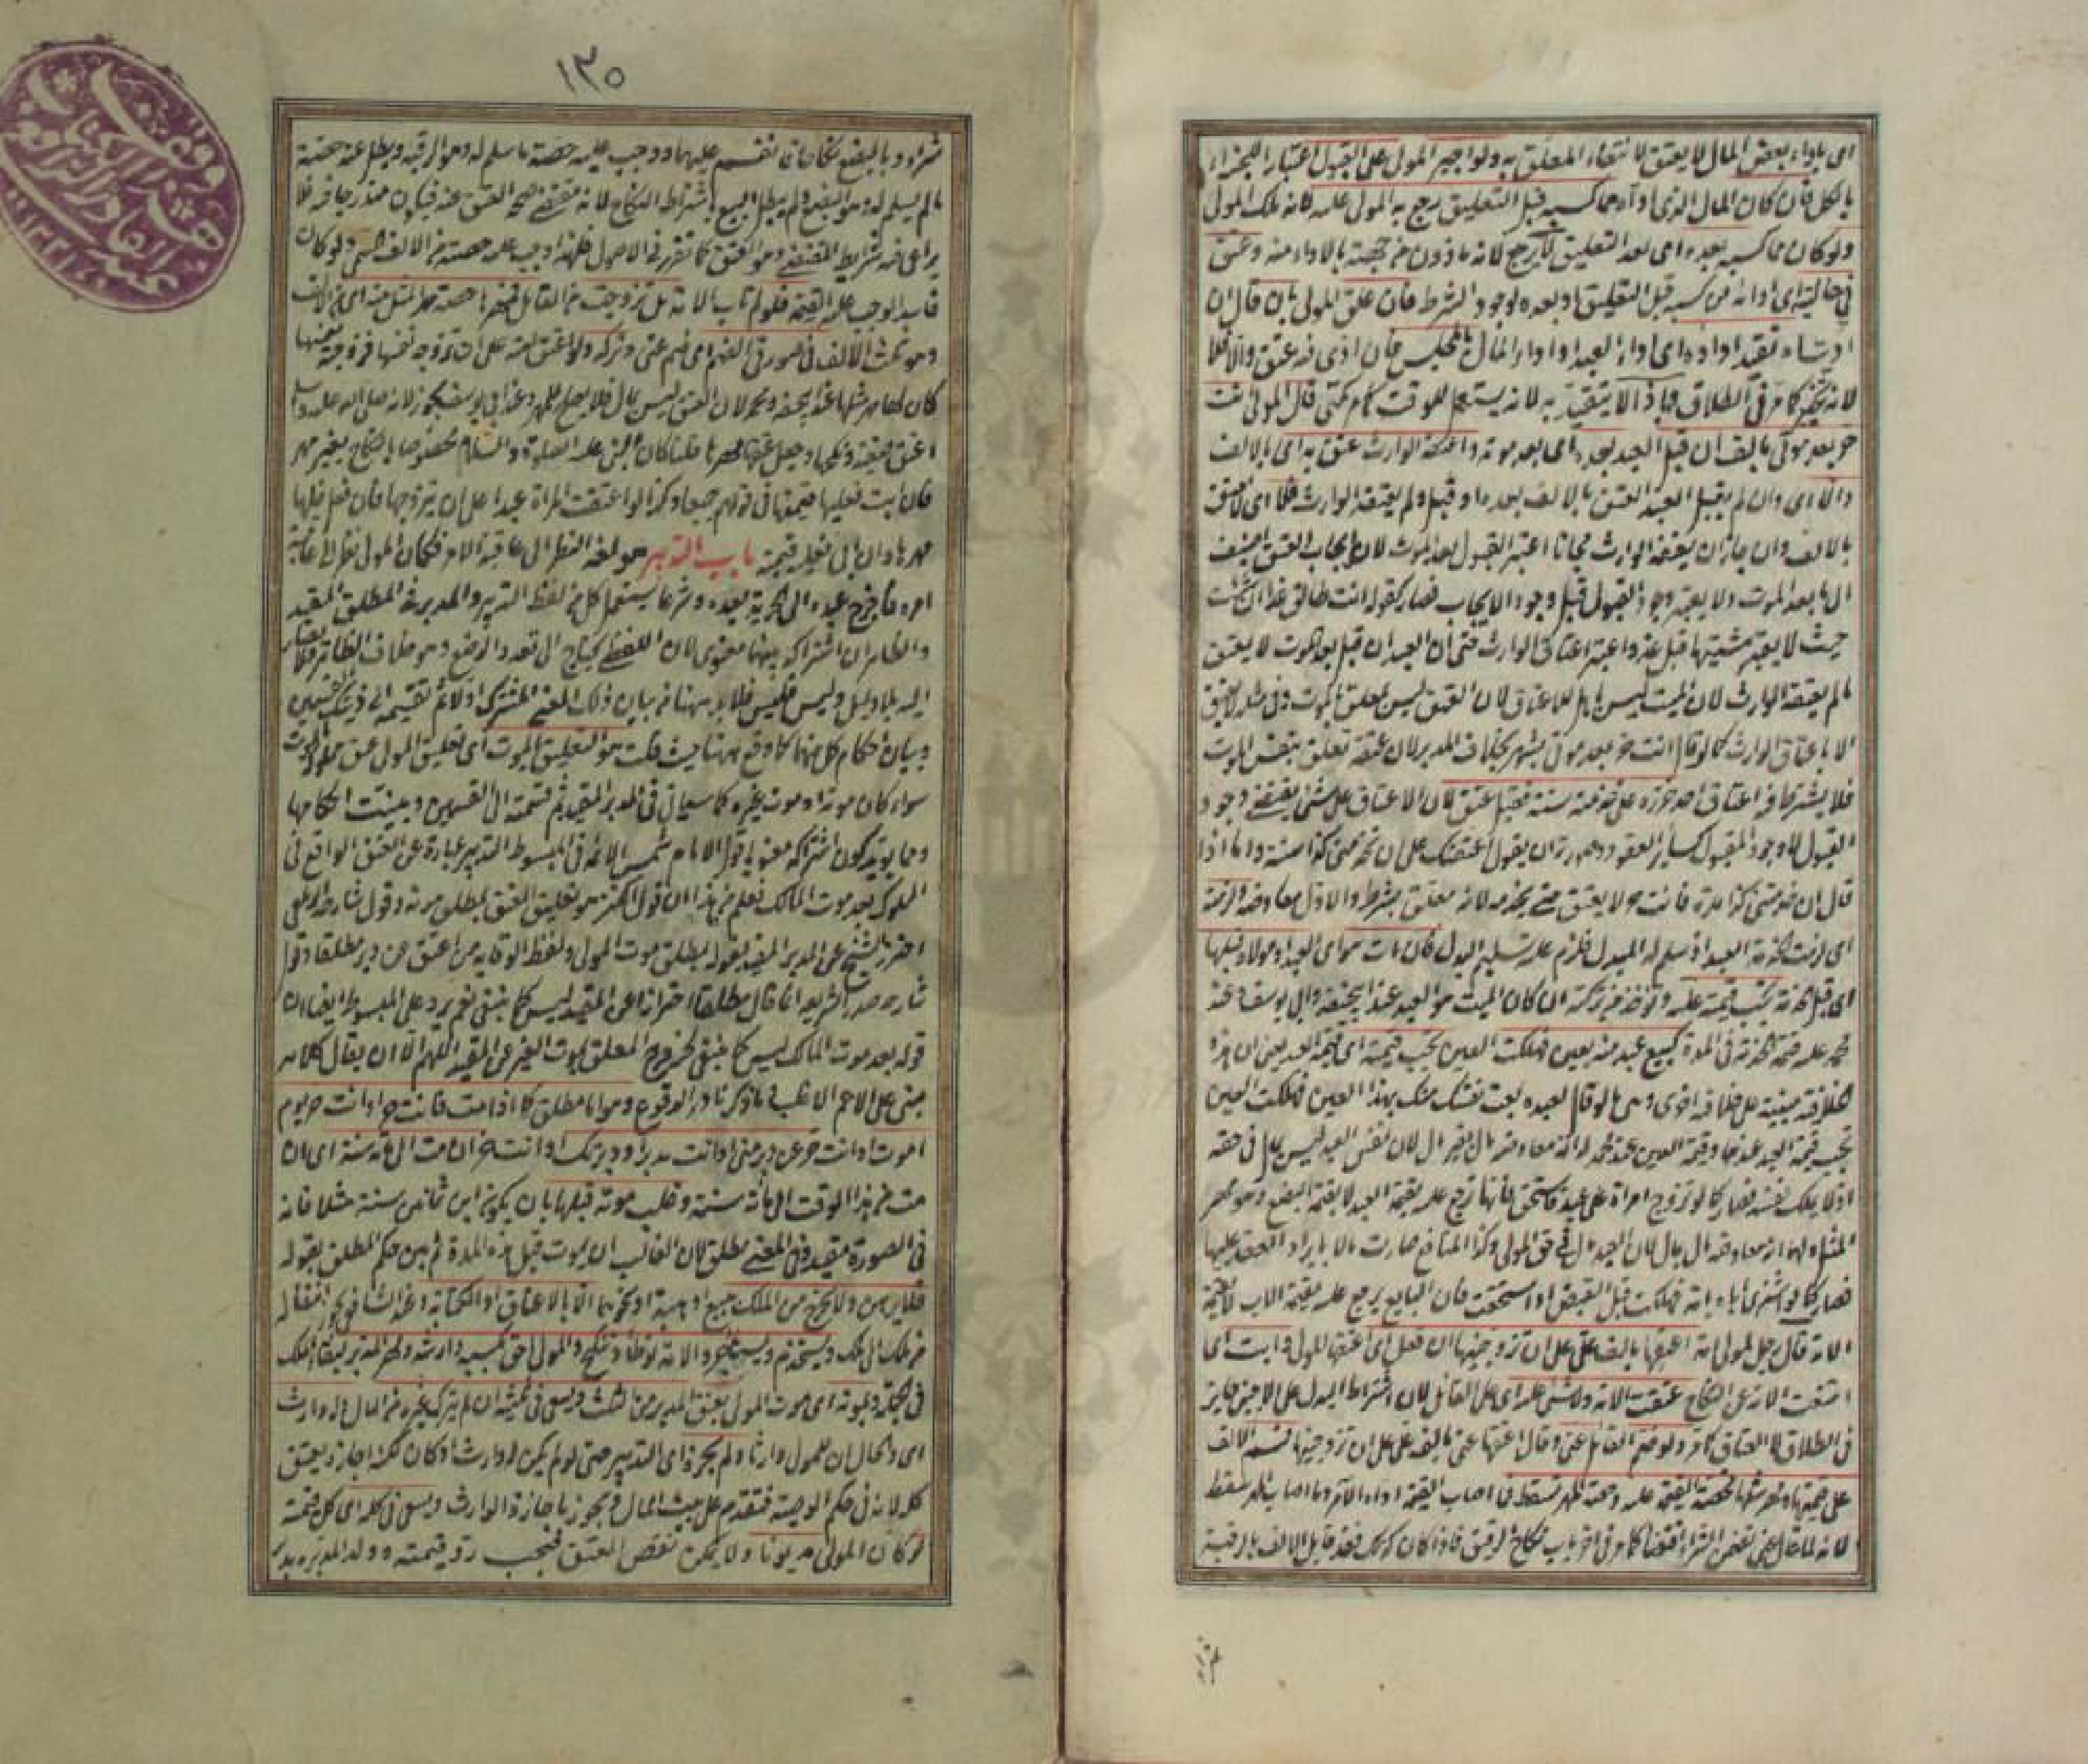 اى باداء بعض المال لا يعتق لانتفاء المعلق به ولو اجبر المولى على القبول اعتبارا للجزاء
بالكل فان كان المال الذى اداه مما كسبه قبل التعليق رجع به المولى عليه لانه ملك المولى
ولو كان مما كسبه بعده اى بعد التعليق لا يرجع لانه ماذون من جهته بالاداء منه وعتق
فى حاليه اى ادائه من كسبه قبل التعليق او بعده لوجود الشرط فان علق المولى بان قال ان
اديت تقيد اداؤه اى اداء العبد اداء المال بالمجلس فان ادى فيه عتق والا فلا
لانه تخيير كما مر فى الطلاق وباذا لا يتقيد به لانه يستعمل للوقت كما مر كمتى قال المولى انت
حر بعد موتى بالف ان قبل العبد بعده اى بعد موته واعتقه الوارث عتق به اى بالالف
والا اى وان لم يقبل العبد العتق بالالف بعده او قبل ولم يعتقه الوارث فلا اى لا يعتق
بالالف وان جاز ان يعتقه الوارث مجانا اعتبر القبول بعد الموت لان ايجاب العتق اضيف
الى ما بعد الموت ولا يعتبر وجود القبول قبل وجود الايجاب فصار كقوله انت طالق غدا ان شئت
حيث لا يعتبر مشيتها قبل غد واعتبر اعتاق الوارث حتى ان العبد ان قبل بعد الموت لا يعتق
ما لم يعتقه الوارث لان الميت ليس باهل للاعتاق لان العتق ليس بمعلق بالموت وفى مثله لا يعتق
الا باعتاق الوارث كما لو قال انت حر بعد موتى بشهر بخلاف المدبر لان عتقه تعلق بنفس الموت
فلا يشترط فيه اعتاق احد حرره على خدمته سنة فقبل عتق لان الاعتاق على شئ يقتضى وجود
القبول لا وجود المقبول كسائر العقود وصورته ان يقول اعتقتك على ان تخدمنى كذا سنة واما اذا
قال ان خدمتنى كذا مدة فانت حر لا يعتق حتى يخدمه لانه معلق بشرط والاول معاوضة ولزمته
اى لزمت خدمة العبد اذ سلم له المبدل فلزم عليه تسليم البدل فان مات هو اى العبد او مولاه قبلها
اى قبل خدمته تجب قيمته عليه وتؤخذ من تركته ان كان الميت هو العبد عند ابى حنيفة وابى يوسف وعند
محمد عليه قيمة خدمته فى المدة كبيع عبد منه بعين فهلكت العين تجب قيمته اى قيمة العبد يعنى ان هذه
الخلافية مبنية على خلافية اخرى وهى ما لو قال لعبده بعت نفسك منك بهذا العين فهلكت العين
تجب قيمة العبد عندهما وقيمة العين عند محمد له انه معاوضة مال بغير مال لان نفس العبد ليس بمال فى حقه
اذ لا يملك نفسه فصار كما لو تزوج امراة على عبد فاستحق فانها ترجع عليه بقيمة العبد لا بقيمة البضع وهو مهر
المثل ولهما انه معاوضة مال بمال لان العبد مال فى حق المولى وكذا المنافع صارت مالا بايراد العقد عليها
فصار كما لو اشترى اباه بامة فهلكت قبل القبض او استحقت فان البايع يرجع عليه بقيمة الاب لا بقيمة
الامة قال رجل لمولى امة اعتقها بالف على على ان تزوجنيها ان فعل اى اعتقها المولى وابت اى
امتنعت الامة عن النكاح عتقت الامة ولا شئ عليه اى على القائل لان اشتراط البدل على الاجنبى جايز
فى الطلاق لا العتاق كما مر ولو ضم القائل عنى وقال اعتقها عنى بالف على على ان تزوجنيها قسم الالف
على قيمتها ومهر مثلها فحصة القيمة عليه وحصة المهر تسقط فما اصاب القيمة اداه الآمر وما اصاب المهر سقط
لانه لما قال عنى تضمن الشراء اقتضاء كما مر فى آخر باب نكاح الرقيق فاذا كان كذلك فقد قابل الالف بالرقبة
١٣٥
شراء وبالبضع نكاحا فانقسم عليهما ووجب عليه حصة ما سلم له وهو الرقبة وبطل عنه حصة
ما لم يسلم له وهو البضع ولم يبطل البيع باشتراط النكاح لانه مقتضى لصحة العتق عنه فيكون مندرجا فيه فلا
يراعى فيه شرايط المقتضى وهو العتق كما تقرر فى الاصول فلهذا وجب عليه حصته من الالف المسمى ولو كان
فاسدا لوجب عليه القيمة فلو لم تاب الامة بل تزوجت من القائل فمهرها حصة مهر المثل منه اى من الالف
وهو ثلث الالف فى صورتى الضم اى ضم عنى وتركه ولو اعتق امته على ان تزوجه نفسها فزوجته نفسها
كان لها مهر مثلها عند ابى حنيفة ومحمد لان العتق ليس بمال فلا يصلح للمهر وعند ابى يوسف يجوز لانه صلى الله عليه وسلم
اعتق صفية ونكحها وجعل عتقها مهرها قلنا كان النبى عليه الصلوة والسلام مخصوصا بالنكاح بغير مهر
فان ابت فعليها قيمتها فى قولهم جميعا وكذا لو اعتقت المراة عبدا على ان يتزوجها فان فعل فلها
مهرها وان ابى فعليه قيمته باب التدبير هو لغة النظر الى عاقبة الامر فكان المولى نظر الى عاقبة
امره فاخرج عبده الى الحرية بعده وشرعا يستعمل كل من لفظ التدبير والمدبر فى المطلق والمقيد
والظاهر ان اشتراكه بينهما معنوى لان اللفظى يحتاج الى تعدد الوضع وهو خلاف الظاهر فلا يصار
اليه بلا دليل وليس فليس فلا بد ههنا من بيان ذلك المعنى المشترك اولا ثم تقسيمه الى ذينك القسمين
وبيان احكام كل منهما كما وقع ههنا حيث قلت هو التعليق بالموت اى تعليق المولى عتق مملوكه بالموت
سواء كان موته او موت غيره كما سياتى فى المدبر المقيد ثم قسمته الى القسمين وبينت احكامها
ومما يؤيد كون اشتراكه معنويا قول الامام شمس الائمة فى المبسوط التدبير عبارة عن العتق الواقع فى
المملوك بعد موت المالك فعلم من هذا ان قول الكنز هو تعليق العتق بمطلق موته وقول شارحه الزيلعى
احترز الشيخ عن المدبر المقيد بقوله بمطلق موت المولى ولفظ الوقاية من اعتق عن دبر مطلقا وقول
شارحه صدر الشريعة انما قال مطلقا احترازا عن المقيد ليس كما ينبغى نعم يرد على المبسوط ايضا ان
قوله بعد موت المالك ليس كما ينبغى لخروج المعلق بموت الغير عن المقيد اللهم الا ان يقال كلامه
مبنى على الاعم الاغلب وما ذكر نادر الوقوع وهو اما مطلق كاذا مت فانت حر او انت حر يوم
اموت او انت حر عن دبر منى او انت مدبر او دبرتك او انت حر ان مت الى مائة سنة اى ان
مت من هذا الوقت الى مائة سنة وغلب موته قبلها بان يكون ابن ثمانين سنة مثلا فانه
فى الصورة مقيد وفى المعنى مطلق لان الغالب ان يموت قبل هذه المدة ثم بين حكم المطلق بقوله
فلا يرهن ولا يخرج من الملك ببيع او هبة او نحوهما الا بالاعتاق او الكتابة وعند الشافعى يجوز انتقاله
من ملك الى ملك ويستخدم ويستاجر والامة توطأ وتنكح والمولى احق بكسبه وارشه ومهر المدبرة لبقاء الملك
فى الجملة وبموته اى موت المولى يعتق المدبر من الثلث ويسعى فى ثلثيه ان لم يترك غيره من المال وله وارث
اى والحال ان للمولى وارثا ولم يجزه اى التدبير حتى لو لم يكن له وارث او كان لكنه اجازه يعتق
كله لانه فى حكم الوصية فتقدم على بيت المال ويجوز باجازة الوارث ويسعى فى كله اى كل قيمته
لو كان المولى مديونا ولا يمكن نقض العتق فيجب رد قيمته وولد المدبرة مدبر